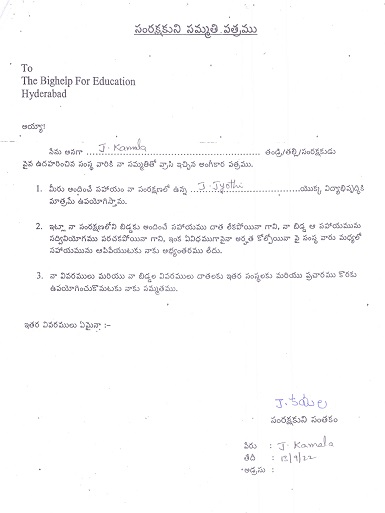 సంరక్షకుని సమ్మతి పత్రము
To
The Bighelp For Education
Hyderabad
అయ్యా!
నేను అనగా J. Kamala తండ్రి/తల్లి/సంరక్షకుడు
పైన ఉదహరించిన సంస్థ వారికి నా సమ్మతితో వ్రాసి ఇచ్చిన అంగీకార పత్రము.
1. మీరు అందించే సహాయం నా సంరక్షణలో ఉన్న J. Jyothi యొక్క విద్యాభివృద్ధికి
మాత్రమే ఉపయోగిస్తాను.
2. ఇట్లా నా సంరక్షణలోని బిడ్డకు అందించే సహాయము దాత లేకపోయినా గాని, నా బిడ్డ ఆ సహాయమును
సద్వినియోగము పరచకపోయినా గాని, ఇంక ఏవిధముగానైనా అర్హత కోల్పోయినా పై సంస్థ వారు మధ్యలో
సహాయమును ఆపివేయుటకు నాకు అభ్యంతరము లేదు.
3. నా వివరములు మరియు నా బిడ్డల వివరములు దాతలకు ఇతర సంస్థలకు మరియు ప్రచారము కొరకు
ఉపయోగించుకొనుటకు నాకు సమ్మతము.
ఇతర వివరములు ఏమైనా :-
J. కమల
సంరక్షకుని సంతకం
పేరు : J. Kamala
తేదీ : 12/9/22
అడ్రసు :